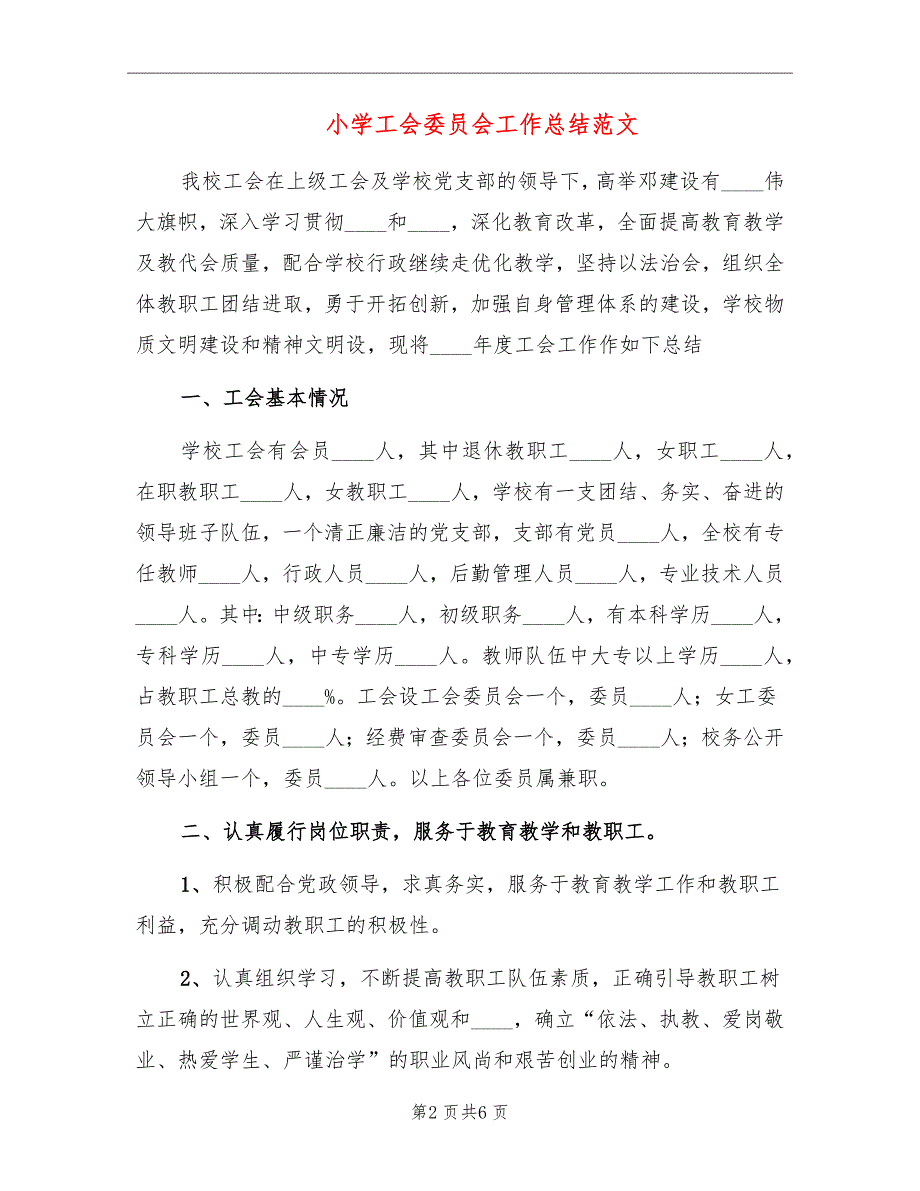 小学工会委员会工作总结范文
我校工会在上级工会及学校党支部的领导下，高举邓建设有____伟
大旗帜，深入学习贯彻____和____，深化教育改革，全面提高教育教学
及教代会质量，配合学校行政继续走优化教学，坚持以法治会，组织全
体教职工团结进取，勇于开拓创新，加强自身管理体系的建设，学校物
质文明建设和精神文明设，现将____年度工会工作作如下总结
一、工会基本情况
学校工会有会员____人，其中退休教职工____人，女职工____人，
在职教职工____人，女教职工____人，学校有一支团结、务实、奋进的
领导班子队伍，一个清正廉洁的党支部，支部有党员____人，全校有专
任教师____人，行政人员____人，后勤管理人员____人，专业技术人员
____人。其中：中级职务____人，初级职务____人，有本科学历____人，
专科学历____人，中专学历____人。教师队伍中大专以上学历____人，
占教职工总教的____%。工会设工会委员会一个，委员____人；女工委
员会一个，委员____人；经费审查委员会一个，委员____人；校务公开
领导小组一个，委员____人。以上各位委员属兼职。
二、认真履行岗位职责，服务于教育教学和教职工。
1、积极配合党政领导，求真务实，服务于教育教学工作和教职工
利益，充分调动教职工的积极性。
2、认真组织学习，不断提高教职工队伍素质，正确引导教职工树
立正确的世界观、人生观、价值观和____，确立“依法、执教、爱岗敬
业、热爱学生、严谨治学”的职业风尚和艰苦创业的精神。
第2页共6页